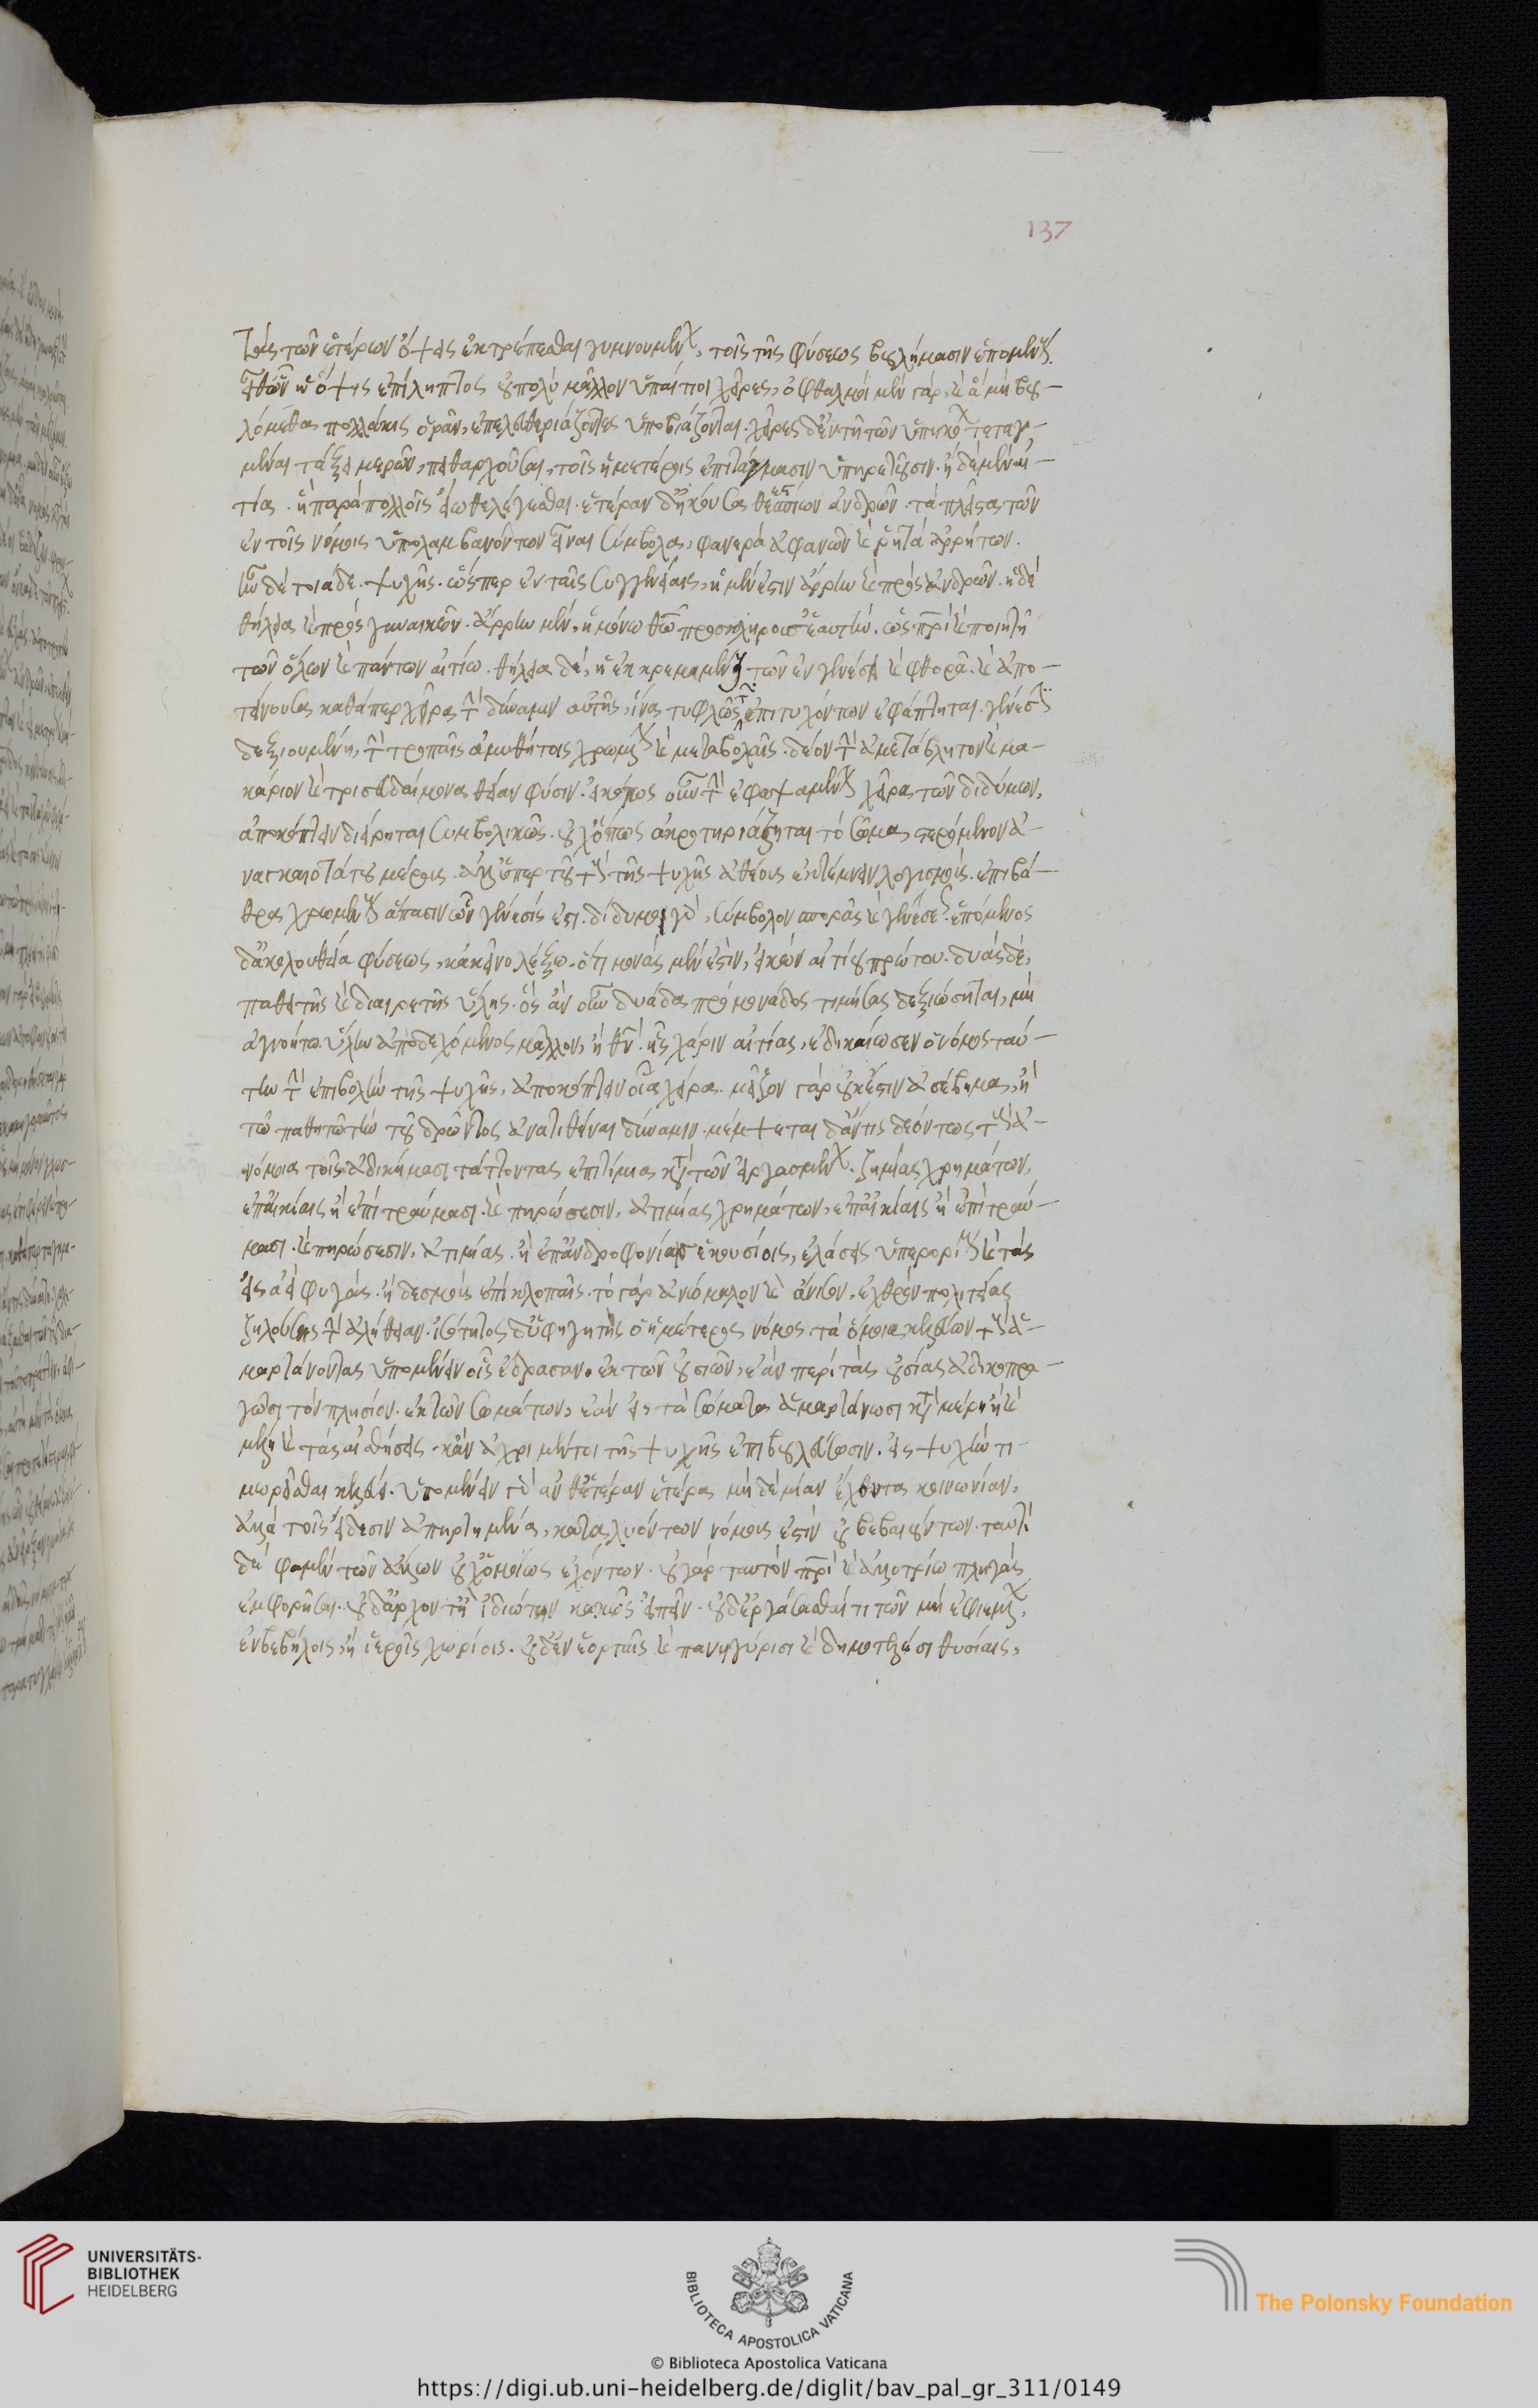 τὰς τῶν ἑτέρων ὄψεις ἐκτρέπεσθαι γυμνουμένων, τοῖς τῆς φύσεως βουλήμασιν ἑπομένην.
εἰθ' ὧν ἡ ὄψις ἐπίληπτος οὐ πολὺ μᾶλλον ὑπαίτιοι χεῖρες, ὀφθαλμοὶ μὲν γὰρ, καὶ ἃ μὴ βου-
λόμεθα πολλάκις ὁρᾶν, ἐπελευθεριάζοντες ὑποβιάζονται. χεῖρες δ' ἐν τῇ τῶν ὑπηκόων τεταγ-
μέναι τάξει μερῶν, πειθαρχοῦσαι, τοῖς ἡμετέροις ἐπιτάγμασιν ὑπηρετοῦσιν. ἡ δὲ μὲν αἰ-
τία. ἡ παρὰ πολλοῖς εἴωθε λέγεσθαι. ἑτέραν δ' ἤκουσα θεσπεσίων ἀνδρῶν. τὰ πλεῖστα τῶν
ἐν τοῖς νόμοις ὑπολαμβανόντων εἶναι σύμβολα, φανερὰ ἀφανῶν καὶ ῥητὰ ἀρρήτων.
ἦν δὲ τοιάδε. ψυχῆς. ὥσπερ ἐν ταῖς συγγενείαις, ἡ μέν ἐστιν ἄρρην καὶ πρὸς ἀνδρῶν. ἡ δὲ
θήλεια καὶ πρὸς γυναικῶν. ἄρρην μὲν, ἡ μόνω θεῶ προσκληροῦσ' ἑαυτὴν. ὡς πατρὶ καὶ ποιητῇ
τῶν ὅλων καὶ πάντων αἰτίω. θήλεια δὲ, ἡ ἐκκρεμαμένη τῶν ἐν γενέσει καὶ φθορᾶ. καὶ ἀπο-
τείνουσα καθάπερ χεῖρας τὴν δύναμιν αὐτῆς, ἵνα τυφλῶς τῶν ἐπιτυχόντων ἐφάπτηται. γένεσιν
δεξιουμένη, τὴν τροπαῖς ἀμυθήτοις χρωμένην καὶ μεταβολαῖς. δέον τὴν ἀμετάβλητον καὶ μα-
κάριον καὶ τρισευδαίμονα θείαν φύσιν. εἰκότως οὖν τὴν ἐφαψαμένην χεῖρα τῶν διδύμων,
ἀποκόπτειν διείρηται συμβολικῶς. οὐχ ὅπως ἀκρωτηριάζηται τὸ σῶμα, στερόμενον ἀ-
ναγκαιοτάτου μέρους. ἀλλ' ὑπὲρ τοῦ τοὺς τῆς ψυχῆς ἀθέους ἐκτέμνειν λογισμοὺς. ἐπιβά-
θρᾳ χρωμένους ἅπασιν ὧν γένεσίς ἐστι. δίδυμοι γὰρ, σύμβολον σπορᾶς καὶ γενέσεως. ἑπόμενος
δ' ἀκολουθεία φύσεως, κἀκεῖνο λέξω. ὅτι μονὰς μέν ἐστιν, εἰκὼν αἰτίου πρώτου. δυὰς δὲ,
παθητῆς καὶ διαιρετῆς ὕλης. ὃς ἂν οὖν δυάδα πρὸ μονάδος τιμήσας δεξιώσηται, μὴ
ἀγνοήτω ὕλην ἀποδεχόμενος μᾶλλον, ἢ θεόν. ἧς χάριν αἰτίας, ἐδικαίωσεν ὁ νόμος ταύ-
την τὴν ἐπιβολὴν τῆς ψυχῆς, ἀποκόπτειν οἷα χεῖρα. μεῖζον γὰρ οὐκ ἔστιν ἀσέβημα, ἢ
τῶ παθητῶ τὴν τοῦ δρῶντος ἀνατιθέναι δύναμιν. μέμψεται δ' ἄν τις δεόντως τοὺς ἀ-
νόμοια τοῖς ἀδικήμασι τάττοντας ἐπιτίμια κατὰ τῶν εἰργασμένων. ζημίας χρημάτων,
ἐπ' αἰκίαις ἢ ἐπὶ τραύμασι. καὶ πηρώσεσιν, ἀτιμίας χρημάτων, ἐπ' αἰκίαις ἢ ἐπὶ τραύ-
μασι. καὶ πηρώσεσιν, ἀτιμίας. ἢ ἐπ' ἀνδροφονίαις ἑκουσίοις, ἐλάσεις ὑπερορίους καὶ τὰς
εἰς ἀεὶ φυγάς. ἢ δεσμοὺς ἐπὶ κλοπαῖς. τὸ γὰρ ἀνώμαλον καὶ ἄνισον, ἐχθρὸν πολιτείας
ζηλούσης τὴν ἀλήθειαν. ἰσότητος δ' ὑφηγητὴς ὁ ἡμέτερος νόμος. τὰ ὅμοια κελεύων τοὺς ἁ-
μαρτάνοντας ὑπομένειν οἷς ἔδρασαν. ἐκ τῶν οὐσιῶν, ἐὰν περὶ τὰς οὐσίας ἀδικοπρα-
γῶσι τὸν πλησίον. ἐκ τῶν σωμάτων, ἐὰν εἰς τὰ σώματα ἁμαρτάνωσι κατὰ μέρη ἢ καὶ
μέλη καὶ τὰς αἰσθήσεις. κἂν ἄχρι μέντοι τῆς ψυχῆς ἐπιβουλεύσωσιν. εἰς ψυχὴν τι-
μωρεῖσθαι κελεύει. ὑπομένειν τὸ ἀνθ' ἑτέρων ἕτερα μηδεμίαν ἔχοντα κοινωνίαν,
ἀλλὰ τοῖς εἴδεσιν ἀπηρτημένα, καταλυόντων νόμους ἐστὶν οὐ βεβαιούντων. ταυτὶ
δὲ φαμὲν τῶν ἄλλων οὐχ ὁμοίως ἐχόντων. οὐ γὰρ ταυτὸν πατρὶ καὶ ἀλλοτρίω πληγὰς
ἐμφορῆσαι. οὐδ' ἄρχοντα ἢ ἰδιώτην κακῶς εἰπεῖν. οὐδ' ἐργάσασθαί τι τῶν μὴ ἐφιεμένων,
ἐν βεβήλοις, ἢ ἱεροῖς χωρίοις. οὐδ' ἐν ἑορταῖς καὶ πανηγύρισι καὶ δημοτελέσι θυσίαις,
137
UNIVERSITÄTS-
BIBLIOTHEK
HEIDELBERG
BIBLIOTECA APOSTOLICA VATICANA
© Biblioteca Apostolica Vaticana
The Polonsky Foundation
https://digi.ub.uni-heidelberg.de/diglit/bav_pal_gr_311/0149